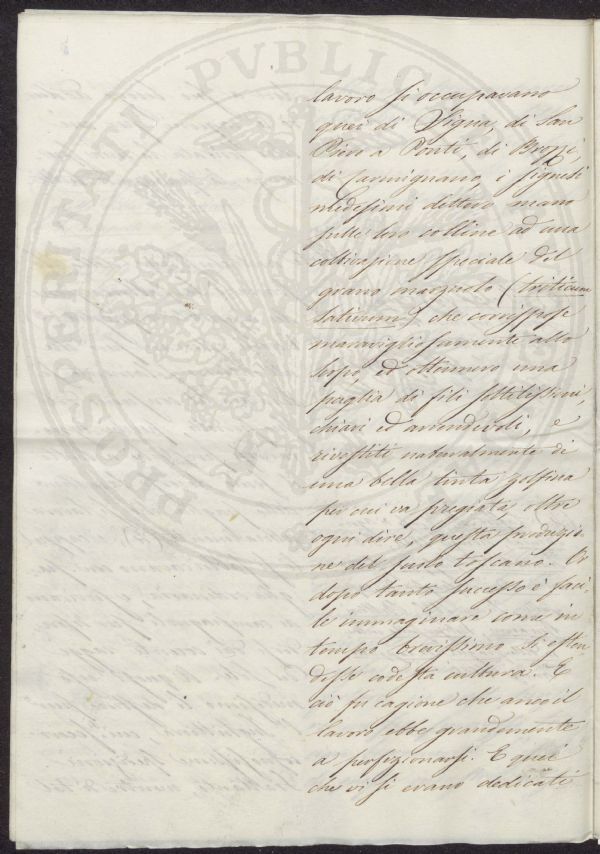 lavoro si occupavano
quei di Signa, di San
Piero a Ponti, di Brozzi,
di Carmignano, i signesi
medesimi dettero mano
sulle loro colline ad una
coltivazione speciale del
grano marzuolo (triticum
sativum) che corrispose
maravigliosamente allo
scopo, ed ottennero una
paglia di fili sottilissimi,
chiari ed arrendevoli, e
rivestiti naturalmente di
una bella tinta
per cui va pregiata, oltre
ogni dire, questa produzio-
ne del suolo toscano. Or
dopo tanto successo è faci-
le immaginare come in
tempo brevissimo si esten-
desse codesta cultura. E
ciò fu cagione che anco il
lavoro ebbe grandemente
a perfezionarsi. E quei
che vi si erano dedicati
PROSPERITATI PVBLIC